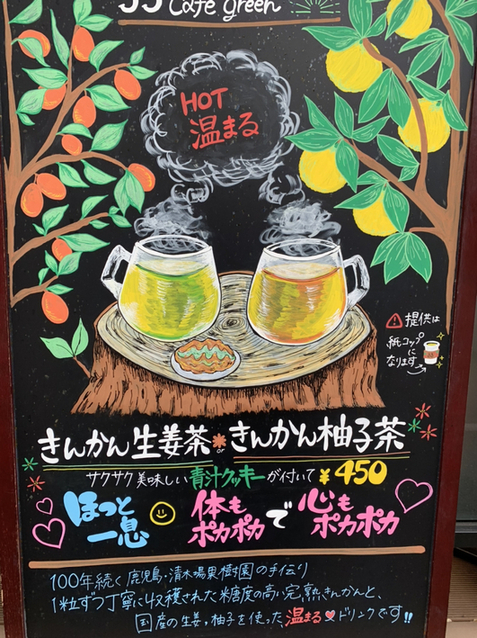 Cafe green
HOT
温まる
⚠提供は
紙コップ
に
なります
きんかん生姜茶 or きんかん柚子茶
サクサク美味しい青汁クッキーが付いて ¥450
ほっと 体も で 心も
一息 ポカポカ ポカポカ
100年続く鹿児島・清木場果樹園の手伝り
1粒ずつ丁寧に収穫された糖度の高い完熟きんかんと、
国産の生姜、柚子を使った温まる♥ドリンクです!!